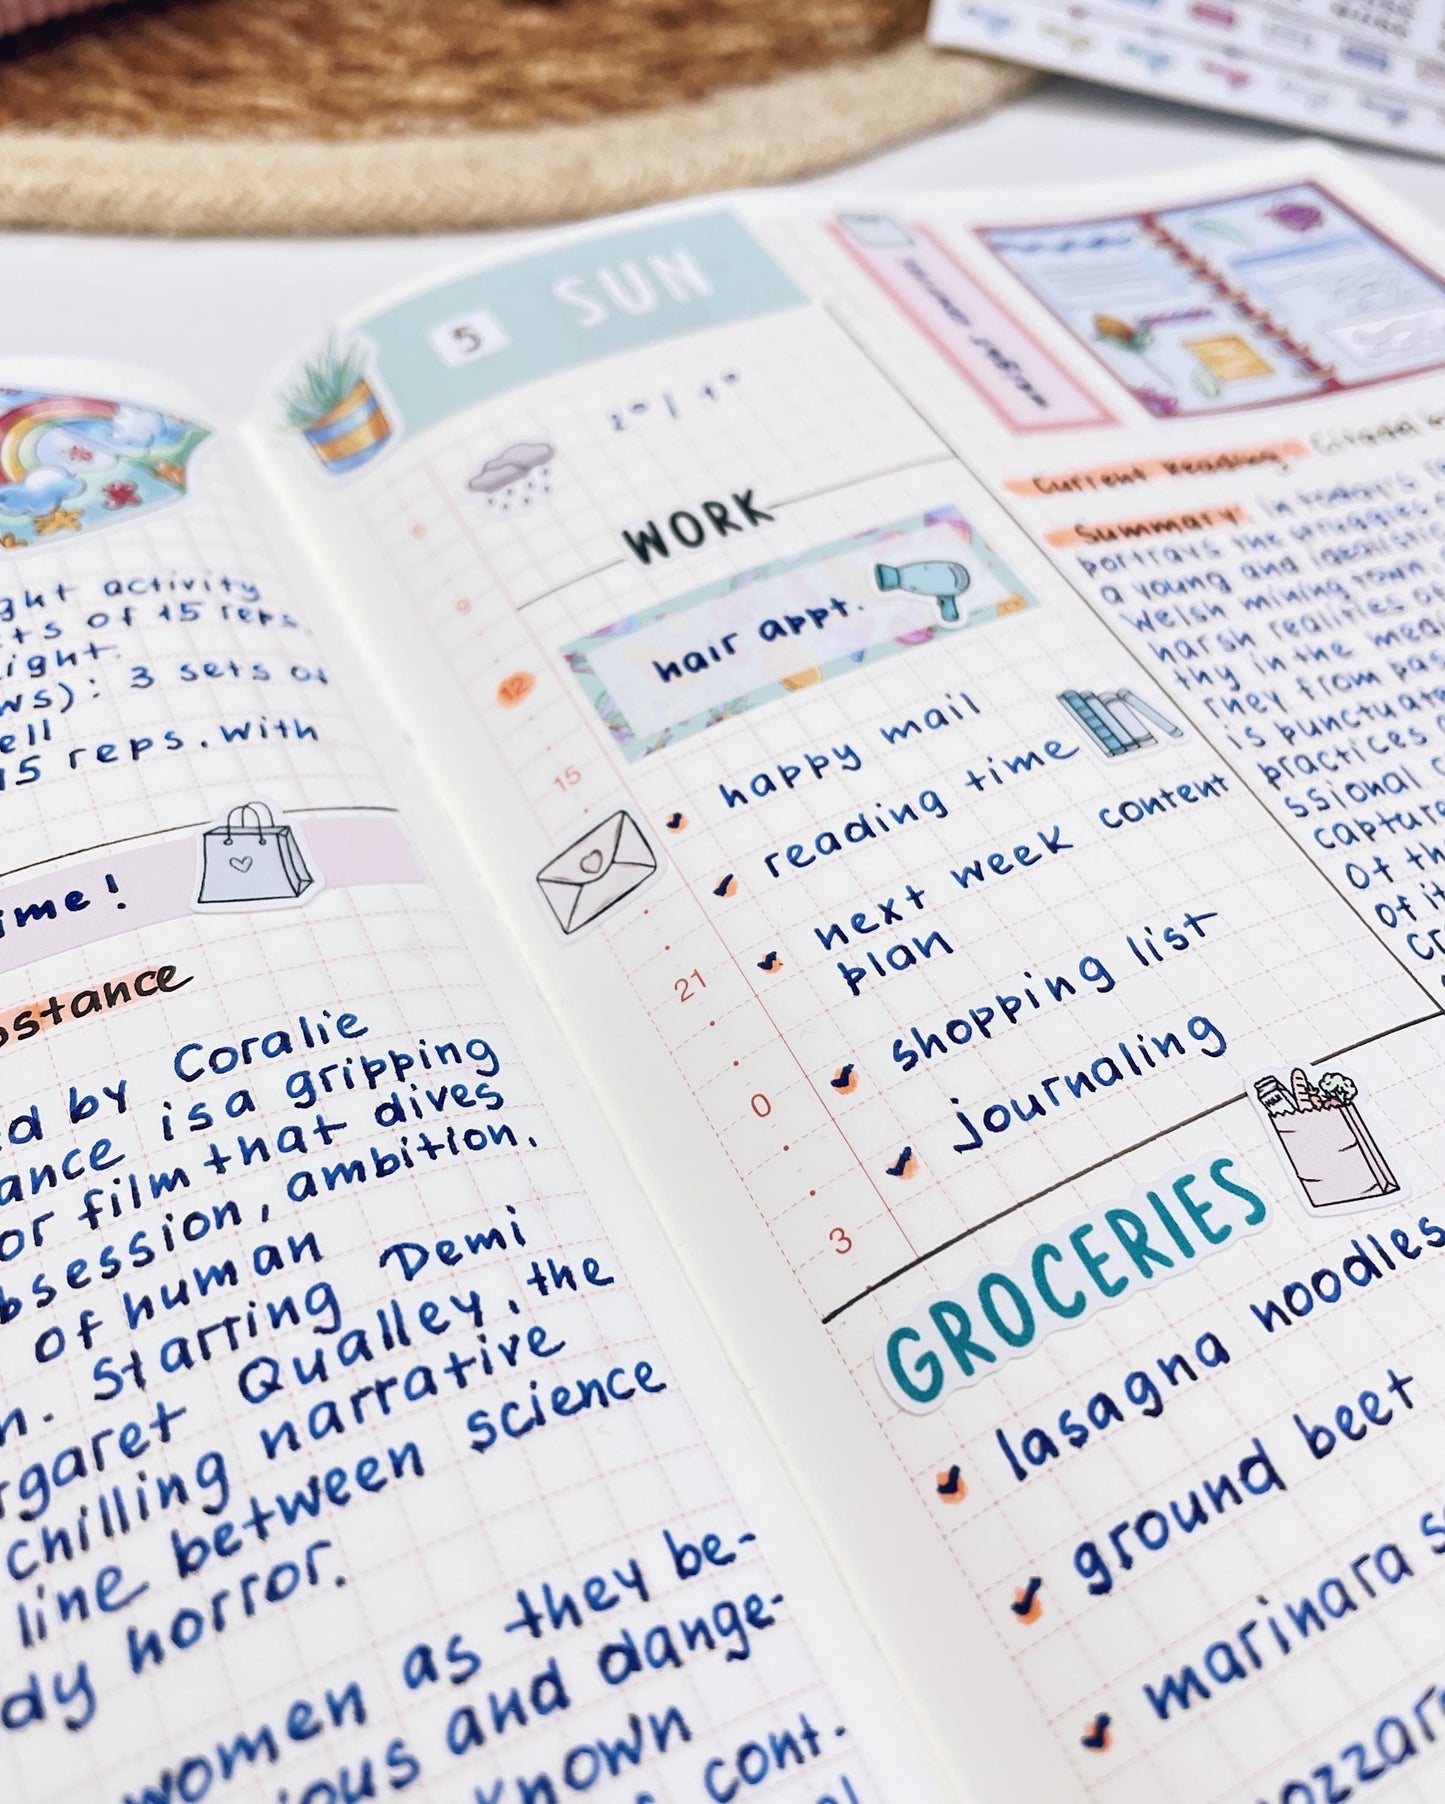 ght activity
ts of 15 reps.
ight.
ws): 3 sets of
ell
15 reps. with
ime!
bstance
ed by Coralie
ance is a gripping
or film that dives
bsession, ambition,
of human
n. Starring Demi
rgaret Qualley, the
chilling narrative
line between science
dy horror.
women as they be-
ious and dange-
known
cont.
5 SUN
WORK
hair appt.
happy mail
reading time
next week content
plan
shopping list
journaling
9
12
15
21
0
3
GROCERIES
lasagna noodles
ground beet
marinara s
ozzar
Current Reading: Citadel
Summary: In today's
portrays the struggles
a young and idealistic
Welsh mining town.
harsh realities
thy in the med
rney from pas
is punctuate
practices
ssional
capture
of th
of it
cr